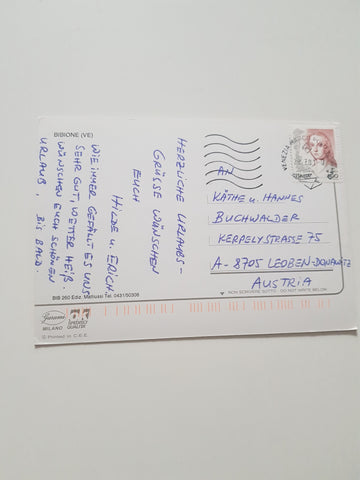 BIBIONE (VE)
HERZLICHE URLAUBS-
GRÜSSE WÜNSCHEN
EUCH
HILDE u. ERICH.
WIE IMMER GEFÄLLT ES UNS
SEHR GUT, WETTER HEIß.
WÜNSCHEN EUCH SCHÖNEN
URLAUB, BIS BALD.
AN
KÄTHE u. HANNES
BUCHWALDER
KERPELYSTRASSE 75
A - 8705 LEOBEN-DONAWITZ
AUSTRIA
BIB 260 Ediz. Matiussi Tel. 0431/50305
NON SCRIVERE SOTTO - DO NOT WRITE BELOW
MILANO
© Printed in C.E.E.
VENEZIA